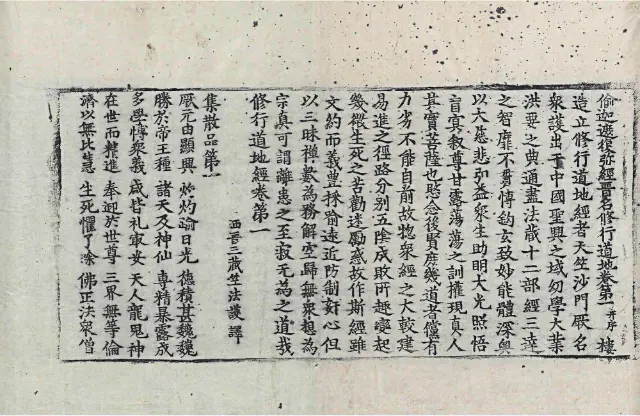 偷迦遮復弥經晉名修行道地卷第一并序 棲
造立修行道地經者天竺沙門厥名
衆護出于中國聖興之域幼學大業
洪要之典通盡法藏十二部經三達
之智靡不貫博鈎玄致妙能體深奧
以大慈悲弘益衆生助明大光照悟
盲冥敘尊甘露蕩蕩之訓權現真人
其實菩薩也愍念後賢庶幾道者儻有
力劣不能自前故惣衆經之大較建
易進之徑路分別五陰成敗所趣變起
幾微生死之苦勸迷勵惑故作斯經雖
文約而義豊採喻遠近防制姧心但
以三昧禪數為務解空歸無衆想為
宗真可謂離患之至寂无為之道哉
修行道地經卷第一
西晉三藏竺法護譯
集散品第一
厥元由顯興 炒灼諭日光 德積甚巍巍
勝於帝王種 諸天及神仙 專精暴露成
多學博衆義 咸皆礼寂安 天人龍鬼神
在世而精進 奉迎於世尊 三界無等倫
濟以無比慧 生死懼了除 佛正法衆僧